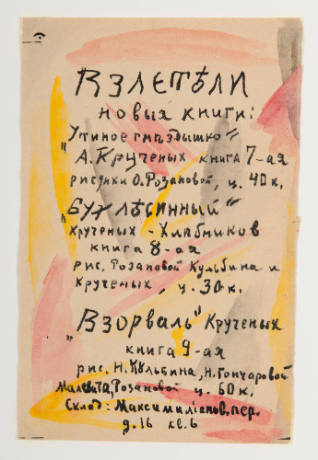 Взлетѣли
новыя книги:
„Утиное гнѣздышко"
А. Крученых книга 7-ая
рисунки О. Розановой, ц. 40 к.
„Бух лѣсинный"
Крученых - Хлѣбников
книга 8-ая
рис. Розановой Кульбина и
Крученых, ц. 30 к.
„Взорваль" Крученых
книга 9-ая
рис. Н. Кульбина, Н. Гончаровой
Малевича, Розановой ц. 60 к.
Склад: Максимиліанов. пер.
д. 16 кв. 6